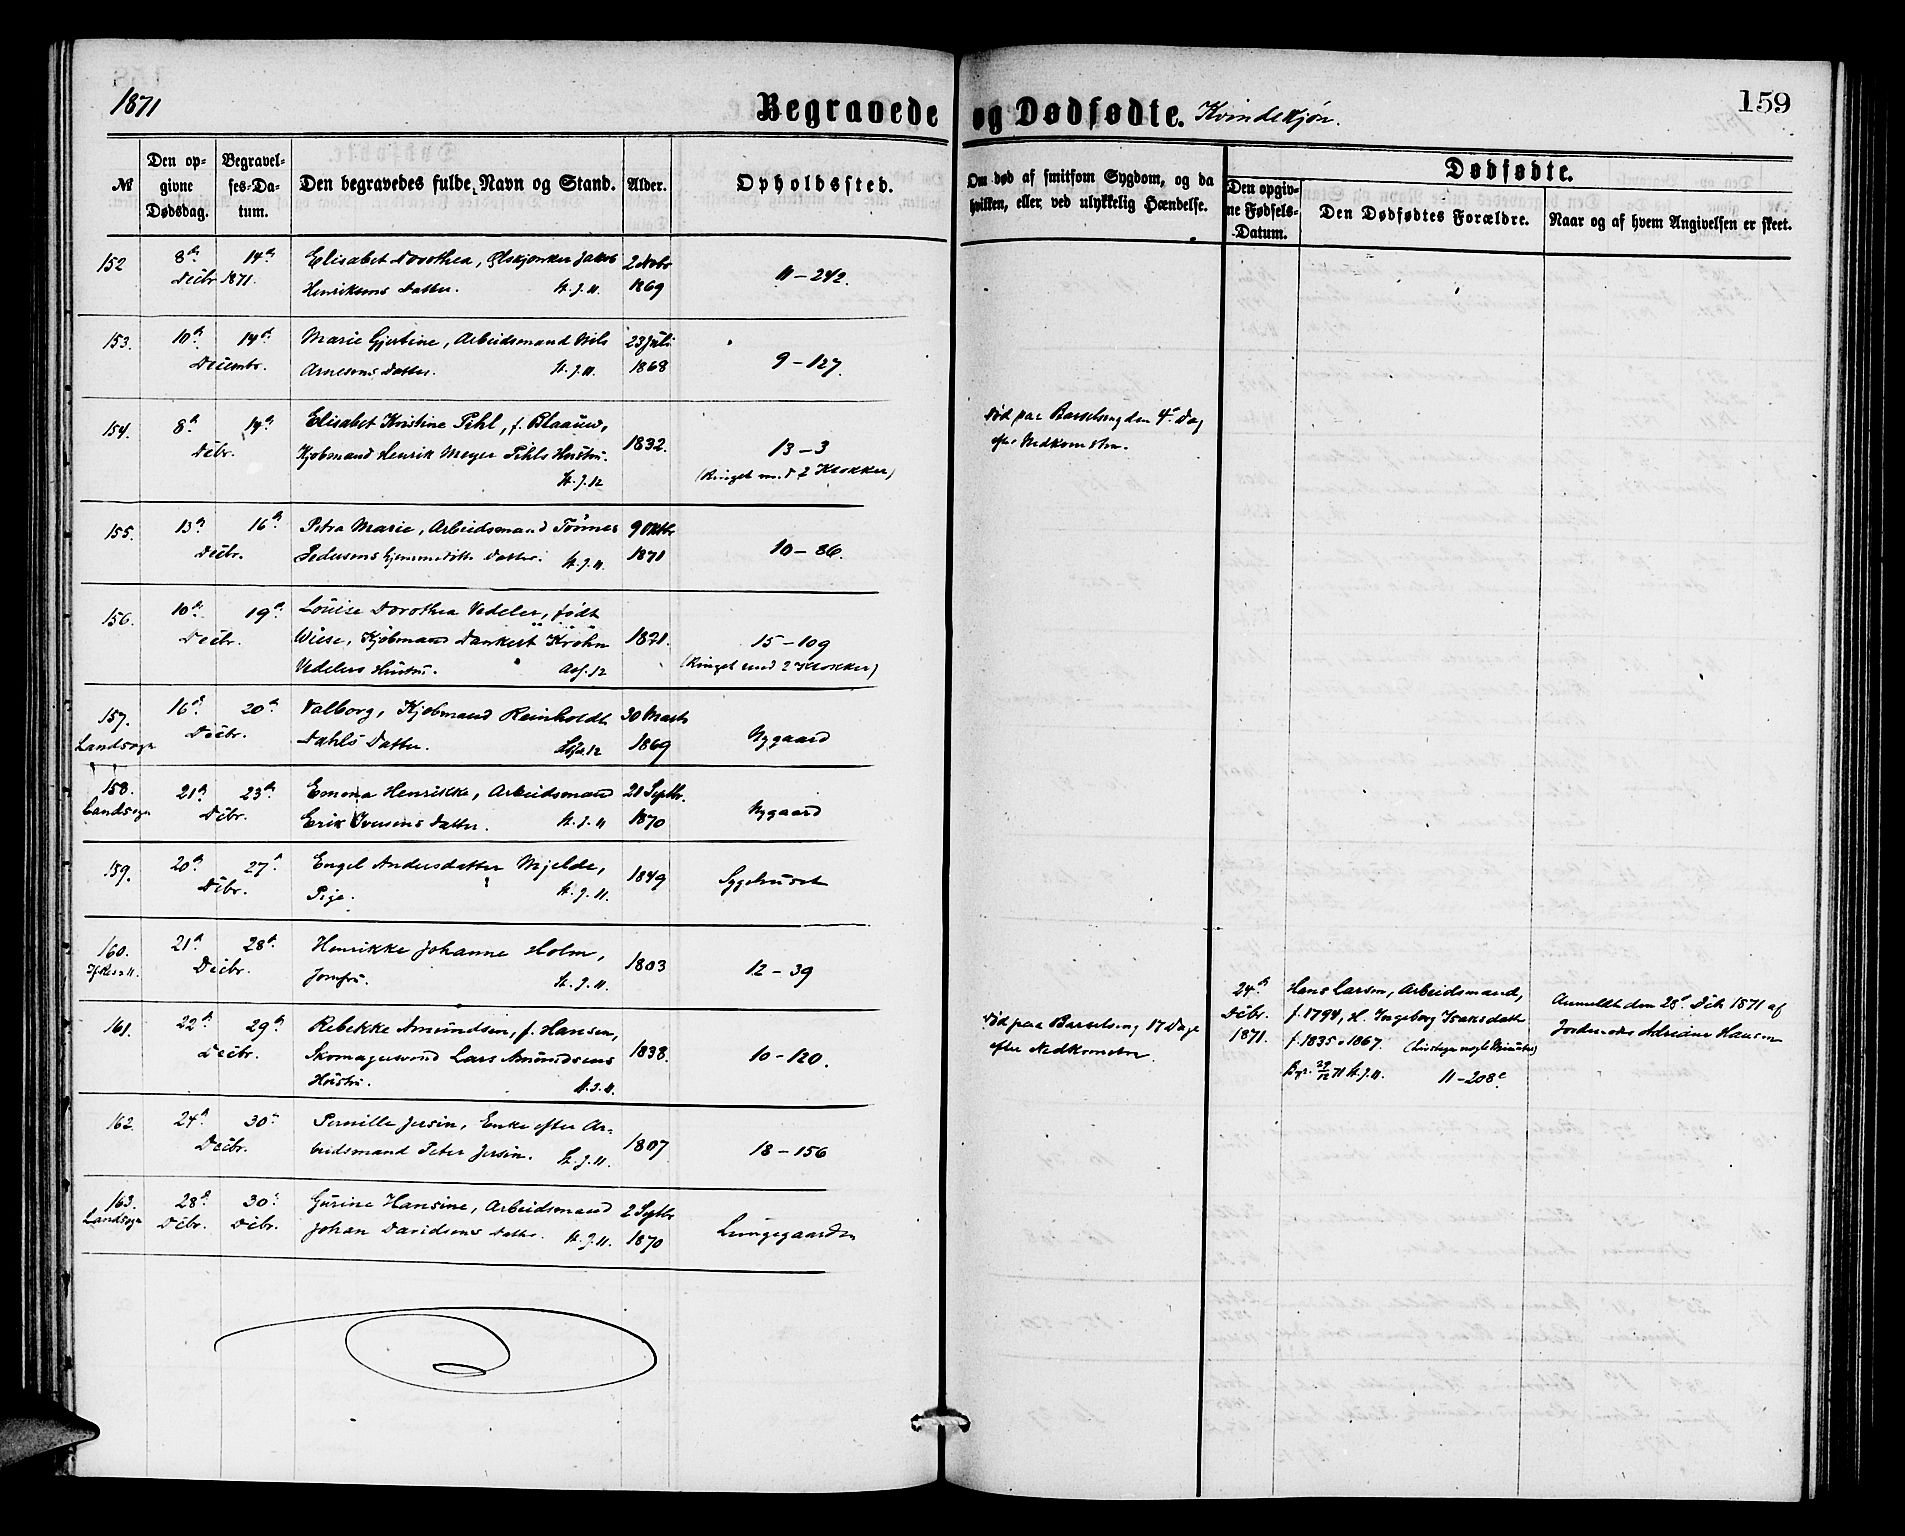 1871
Begravede og Dødfødte. Kvindekjøn.
159
№
Den opgivne Dødsdag.
Begravelses-Datum.
Den begravedes fulde Navn og Stand.
Alder.
Opholdssted.
Om død af smitsom Sygdom, og da
hvilken, eller ved ulykkelig Hændelse.
Dødfødte.
Den opgivne Fødsels-Datum.
Den Dødfødtes Forældre.
Naar og af hvem Angivelsen er skeet.
152 8de 14de Elisabet Dorothea, Jakob 2 Novbr
Decbr 1871. Henriksens Datter. St. J. 11. 1869 11-242.
153. 10de 14de Marie Gjertine, Arbeidsmand Nils 23 Juli
Decembr. Arnesens Datter. St. J. 11. 1868 9-127.
154. 8de 14de Elisabet Kristine Pihl, f. Blaauw,
Decbr. Kjøbmand Henrik Meyer Pihls Hustru. 1832. 13-3
St. J. 12 (Ringet med 2 Klokker)
Død paa Barselseng den 4de Dag
efter Nedkomsten.
155. 13de 16de Petra Marie, Arbeidsmand Tønnes 9 Oktbr
Decbr. Pedersens hjemmedøbte Datter. St. J. 11. 1871 10-86.
156. 10de 19de Louise Dorothea Vedeler, født
Decbr. Wiese, Kjøbmand Dankert Krohn 1821. 15-109
Vedelers Hustru. Asf. 12 (Ringet med 2 Klokker)
157. 16de 20de Valborg, Kjøbmand Reinholdt 30 Marts
Landsogn Decbr. Dahls Datter. 1869 Nygaard
158. 21de 23de Emma Henrikke, Arbeidsmand 21 Septbr.
Landsogn Decbr. Erik Iversens Datter. St. J. 11 1870 Nygaard
159. 20de 27de Engel Andersdatter Mjelde, 1849 Sygehuset
Decbr. Pige. St. J. 11.
160. 21de 28de Henrikke Johanne Holm, 1803 12-39
Decbr. Jomfru. St. J. 11.
161. 22de 29de Rebekke Amundsen, f. Hansen,
Decbr. Skomagersvend Lars Amundsens 1838. 10-120.
Hustru. St. J. 11.
Død paa Barselseng 17 Dage
efter Nedkomsten.
24de
Decbr.
1871.
Hans Larsen, Arbeidsmand,
f. 1794, H. Ingeborg Isaksdatter
f. 1835 v. 1867. (levede nogle Minutter)
Bgr. 29/12 71 St. J. 11. 11-208c
Anmeldt den 28de Decb 1871 af
Jordemoder Adriane Hansen
162. 24de 30te Pernille Jersin, Enke efter Ar-
Decbr. beidsmand Peter Jersin. St. J. 11. 1807 18-156
163. 28de 30te Gurine Hansine, Arbeidsmand 2 Septbr
Landsogn Decbr. Decbr. Johan Davidsens Datter. St. J. 11. 1870 Lungegaarden